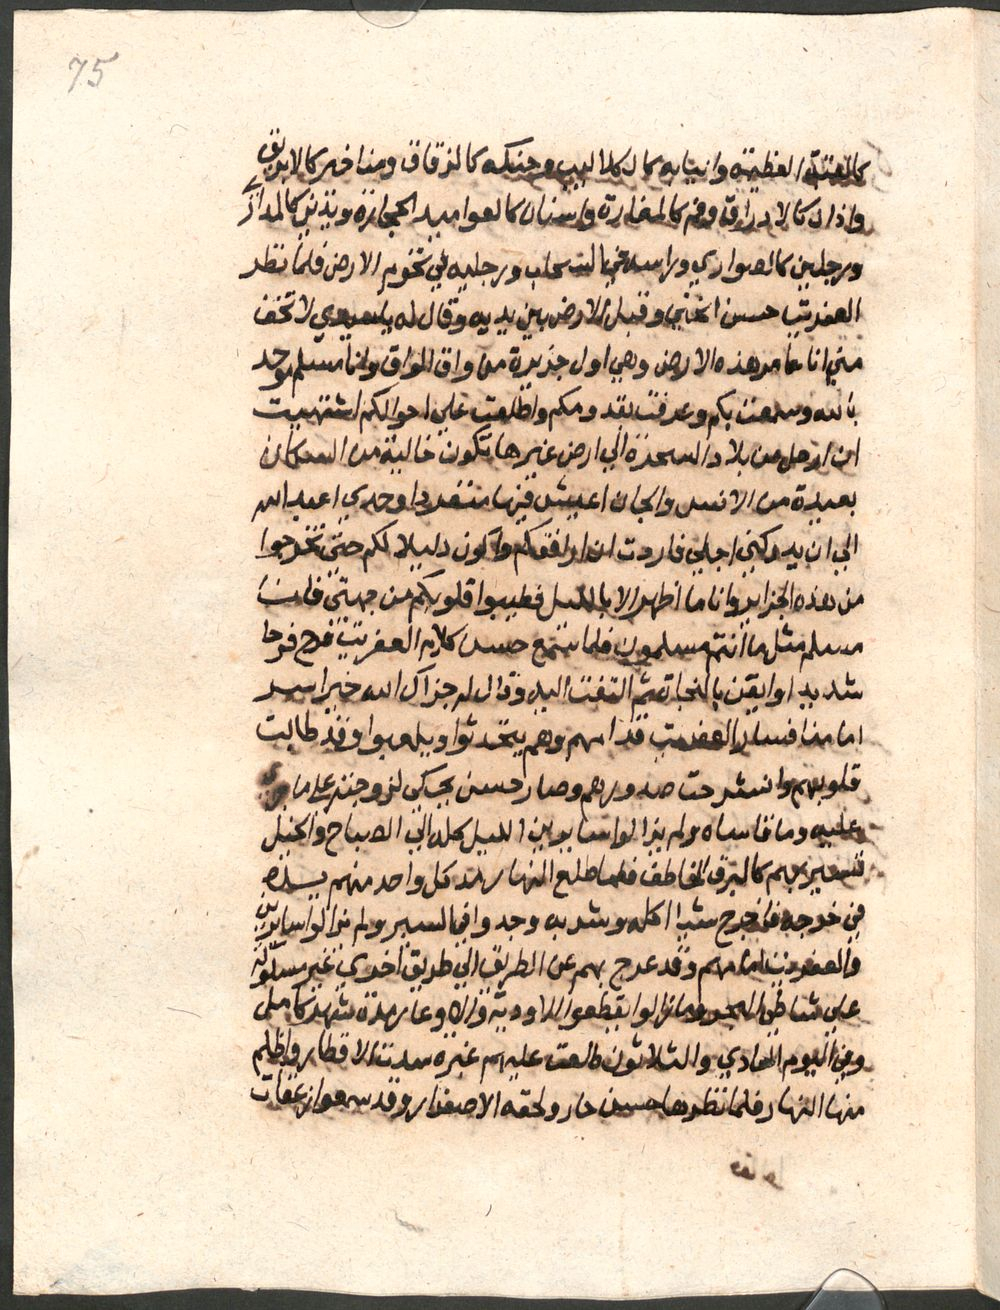 75
كالقبة العظيمة وانيابه كالكلاليب وحنكه كالزقاق ومناخير كالابريق
واذان كالادراق وفم كالمغارة واسنان كالعواميد الحجارة ويدين كالمداري
ورجلين كالصواري وراسه في السحاب ورجليه في تخوم الارض فلما نظر
العفريت حسن انحني وقبل الارض بين يديه وقال له ياسيدي لا تخف
مني انا عامر هذه الارض وهي اول جزيرة من واق الواق وانا مسلم موحد
بالله وسمعت بكم وعرفت بقدومكم واطلعت علي احوالكم اشتهيت
ان ارحل من بلاد السحرة الي ارض غيرها تكون خالية من السكان
بعيدة من الانس والجان اعيش فيها منفردا وحدي اعبد الله
الي ان يدركني اجلي فاردت ان ارافقكم واكون دليلا لكم حتي تخرجوا
من هذه الجزاير وانا ما اظهر الا بالليل فطيبوا قلوبكم من جهتي فانا
مسلم مثل ما انتم مسلمون فلما سمع حسن كلام العفريت فرح فرحا
شديدا وايقن بالنجاة ثم التفت اليه وقال له جزاك الله خيرا سير
امامنا فسار العفريت قدامهم وهم يتحدثوا ويلعبوا وقد طابت
قلوبهم وانشرحت صدورهم وصار حسن يحكي لزوجته علي ما جري
عليه وما قاساه ولم يزالوا سايرين الليل كله الي الصباح والخيل
تسير بهم كالبرق الخاطف فلما طلع النهار مد كل واحد منهم يده
في خرجه فاخرج شيا اكله وشربه وجدوا في السير ولم يزالوا سايرين
والعفريت امامهم وقد عرج بهم عن الطريق الي طريق اخري غير مسلوكه
علي شاطي البحر وما زالوا يقطعوا الاودية والاوعار مدة شهر كامل
وفي اليوم الحادي والثلاثون طلعت عليهم غبرة سدت الاقطار واظلم
منها النهار فلما نظرها حسن حار ولحقه الاصفرار وقد سمعوا زعقات